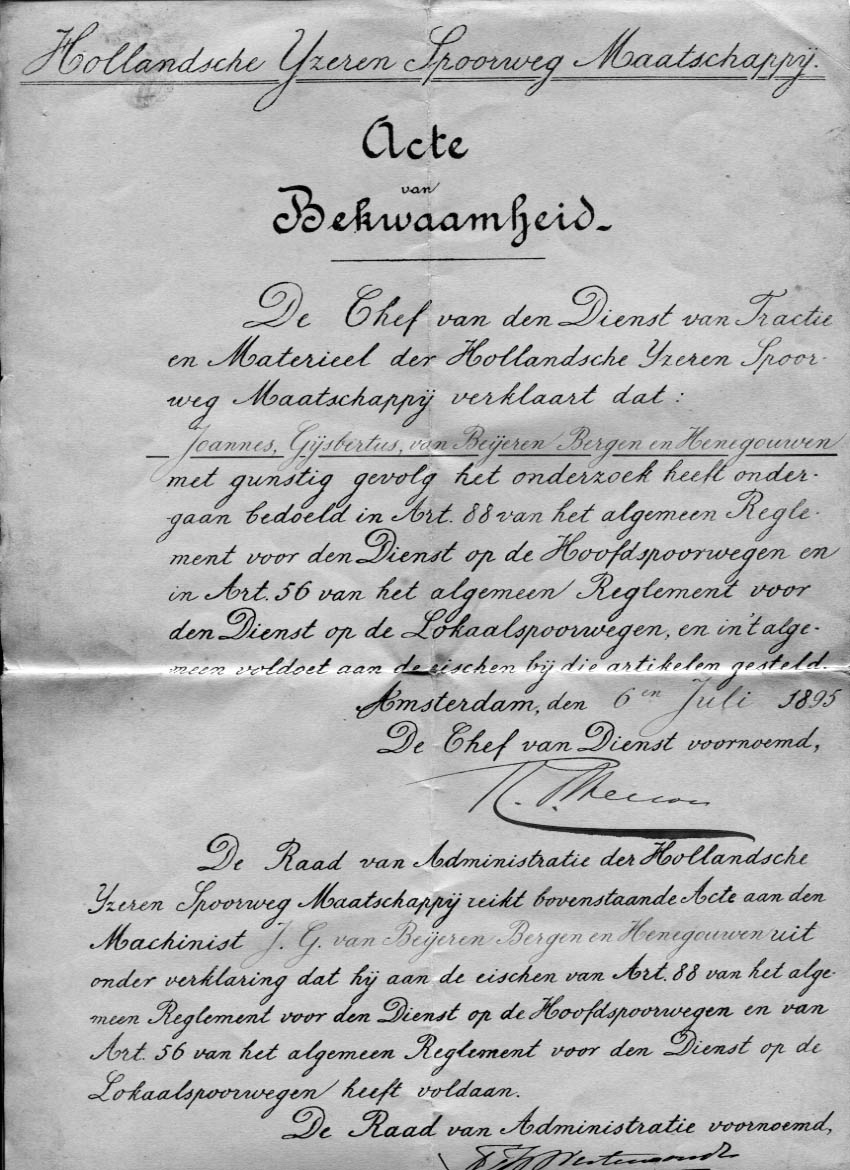 Hollandsche Yzeren Spoorweg Maatschappij.
Acte
van
Bekwaamheid.
De Chef van den Dienst van Tractie
en Materieel der Hollandsche Yzeren Spoor-
weg Maatschappij verklaart dat:
Joannes, Gijsbertus, van Beijeren Bergen en Henegouwen
met gunstig gevolg het onderzoek heeft onder-
gaan bedoeld in Art. 88 van het algemeen Regle-
ment voor den Dienst op de Hoofdspoorwegen en
in Art. 56 van het algemeen Reglement voor
den Dienst op de Lokaalspoorwegen, en in 't alge-
meen voldoet aan de eischen bij die artikelen gesteld.
Amsterdam, den 6en Juli 1895
De Chef van Dienst voornoemd,
De Raad van Administratie der Hollandsche
Yzeren Spoorweg Maatschappij reikt bovenstaande Acte aan den
Machinist J. G. van Beijeren Bergen en Henegouwen uit
onder verklaring dat hij aan de eischen van Art. 88 van het alge-
meen Reglement voor den Dienst op de Hoofdspoorwegen en van
Art. 56 van het algemeen Reglement voor den Dienst op de
Lokaalspoorwegen heeft voldaan.
De Raad van Administratie voornoemd,